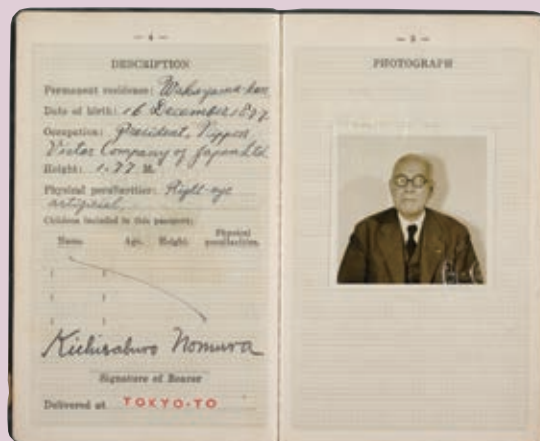 — 4 —
DESCRIPTION
Permanent residence: Wakayama-ken
Date of birth: 16 December 1877
Occupation: President, Nippon
Victor Company of Japan Ltd.
Height: 1.77 M.
Physical peculiarities: Right-eye
artificial.
Children included in this passport:
Name. Age. Height. Physical peculiarities.
Kichisaburo Nomura
Signature of Bearer
Delivered at TOKYO-TO
— 5 —
PHOTOGRAPH